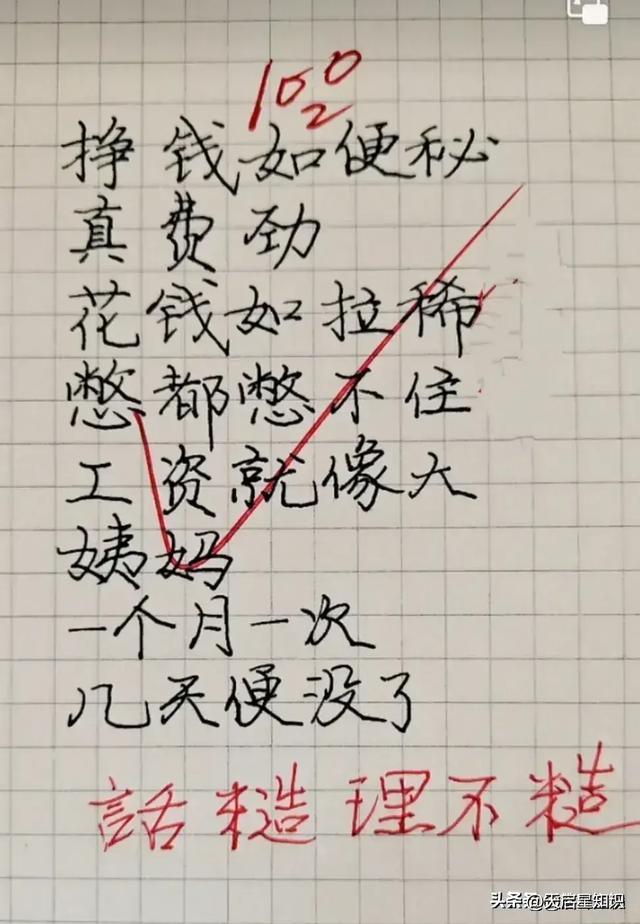 100
挣钱如便秘
真费劲
花钱如拉稀
憋都憋不住
工资就像大
姨妈
一个月一次
几天便没了
話糙理不糙
头条 @天启星知识